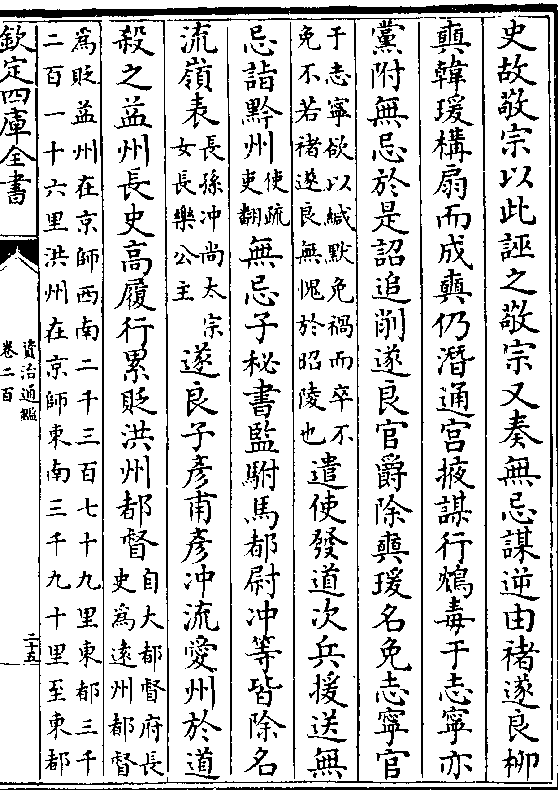 史故敬宗以此誣之敬宗又奏無忌謀逆由褚遂良柳
奭韓瑗構扇而成奭仍潛通宮掖謀行鴆毒于志寧亦
黨附無忌於是詔追削遂良官爵除奭瑗名免志寧官
于志寧欲以緘默免禍而卒不
免不若褚遂良無愧於昭陵也
遣使發道次兵援送無
忌詣黔州
使疏
吏翻
無忌子秘書監駙馬都尉冲等皆除名
流嶺表
長孫冲尚太宗
女長樂公主
遂良子彥甫彥冲流愛州於道
殺之益州長史高履行累貶洪州都督
自大都督府長
史為遠州都督
為貶益州在京師西南二千三百七十九里東都三千
二百一十六里洪州在京師東南三千九十里至東都
欽定四庫全書
資治通鑑
卷二百
二十五